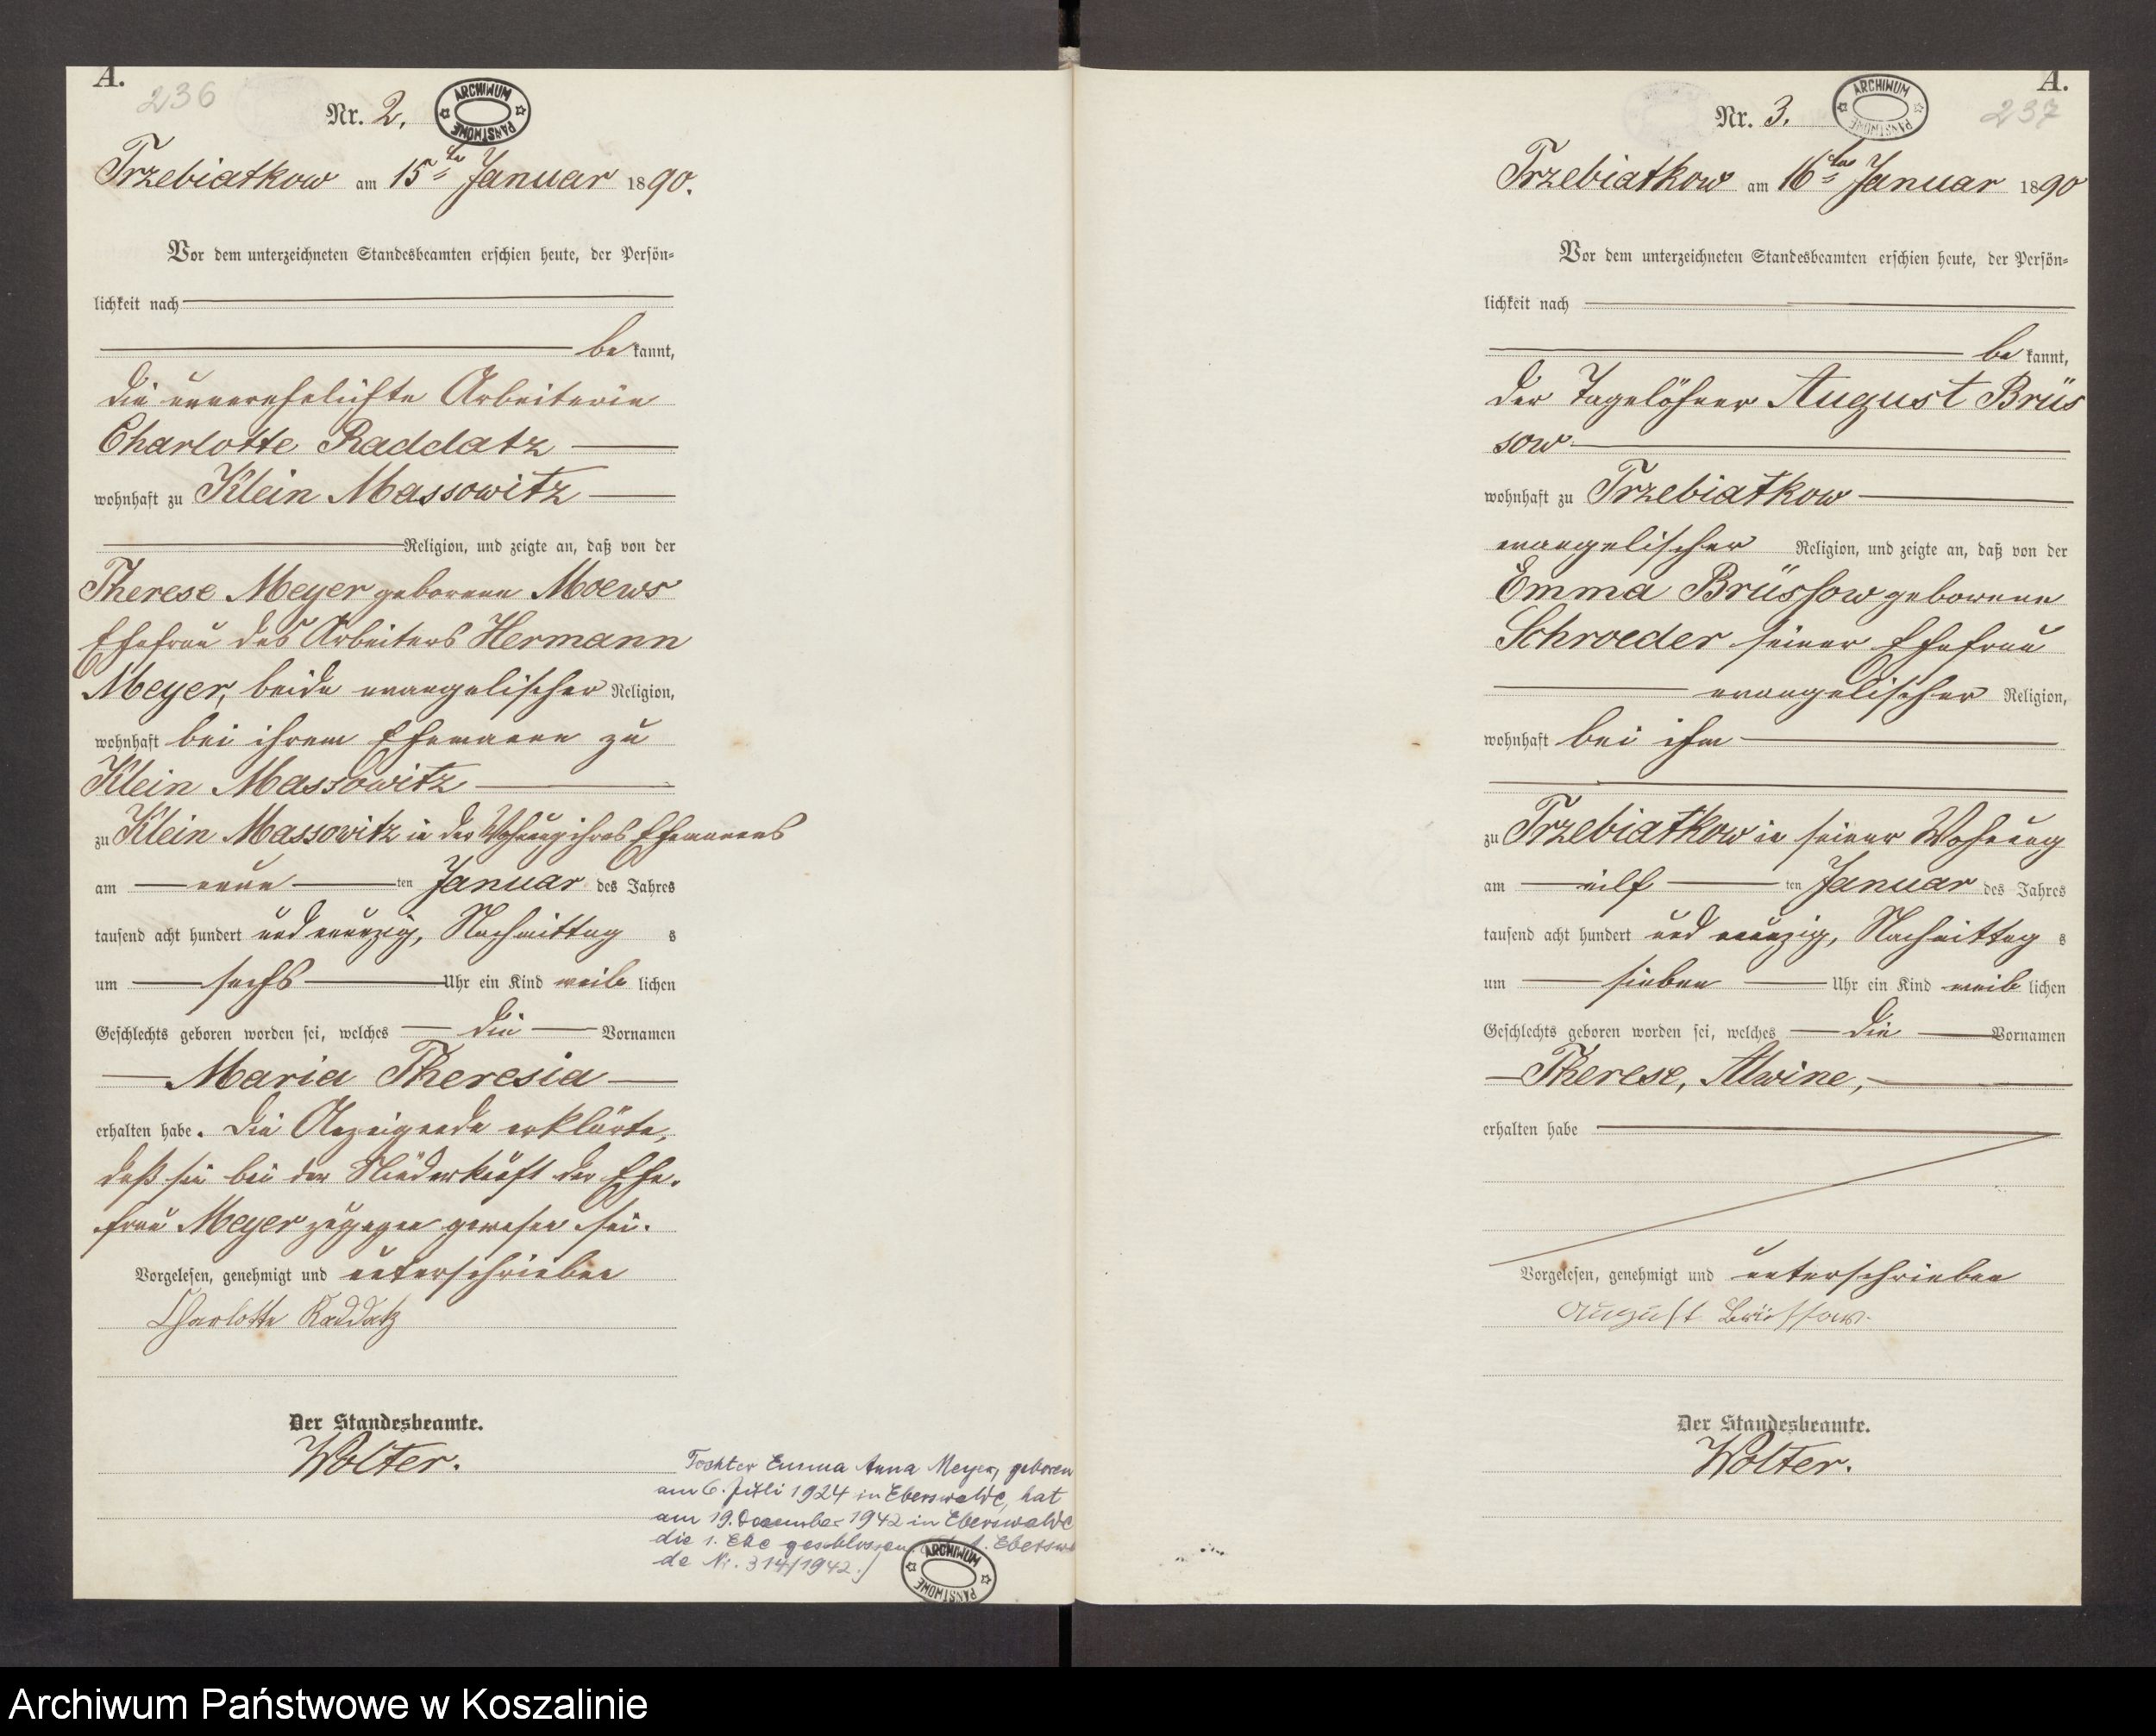 A.
236
Nr. 2.
ARCHIWUM PAŃSTWOWE
Trzebiatkow am 15ten Januar 1890.
Vor dem unterzeichneten Standesbeamten erschien heute, der Persön-
lichkeit nach
be kannt,
die unverehelichte Arbeiterin
Charlotte Raddatz
wohnhaft zu Klein Massowitz
Religion, und zeigte an, daß von der
Therese Meyer geborene Moews
Ehefrau des Arbeiters Hermann
Meyer, beide evangelischer Religion,
wohnhaft bei ihrem Ehemanne zu
Klein Massowitz
zu Klein Massowitz in der Wohnung ihres Ehemannes
am neun ten Januar des Jahres
tausend acht hundert und neunzig, Nachmittag s
um sechs Uhr ein Kind weib lichen
Geschlechts geboren worden sei, welches die Vornamen
Maria Theresia
erhalten habe. Die Anzeigende erklärte,
daß sie bei der Niederkunft der Ehe-
frau Meyer zugegen gewesen sei.
Vorgelesen, genehmigt und unterschrieben
Charlotte Raddatz
Der Standesbeamte.
Wolter.
Tochter Emma Anna Meyer, geboren
am 6. Juli 1924 in Eberswalde, hat
am 19. Dezember 1942 in Eberswalde
die 1. Ehe geschlossen. Eberswal
de Nr. 314/1942.)
ARCHIWUM PAŃSTWOWE
A.
237
Nr. 3.
ARCHIWUM PAŃSTWOWE
Trzebiatkow am 16ten Januar 1890
Vor dem unterzeichneten Standesbeamten erschien heute, der Persön-
lichkeit nach
be kannt,
der Tagelöhner August Brüs
sow
wohnhaft zu Trzebiatkow
evangelischer Religion, und zeigte an, daß von der
Emma Brüssow geborene
Schroeder seiner Ehefrau
evangelischer Religion,
wohnhaft bei ihm
zu Trzebiatkow in seiner Wohnung
am eilf ten Januar des Jahres
tausend acht hundert und neunzig, Nachmittag s
um sieben Uhr ein Kind weib lichen
Geschlechts geboren worden sei, welches die Vornamen
Therese, Alwine,
erhalten habe
Vorgelesen, genehmigt und unterschrieben
August Brüssow.
Der Standesbeamte.
Wolter.
Archiwum Państwowe w Koszalinie